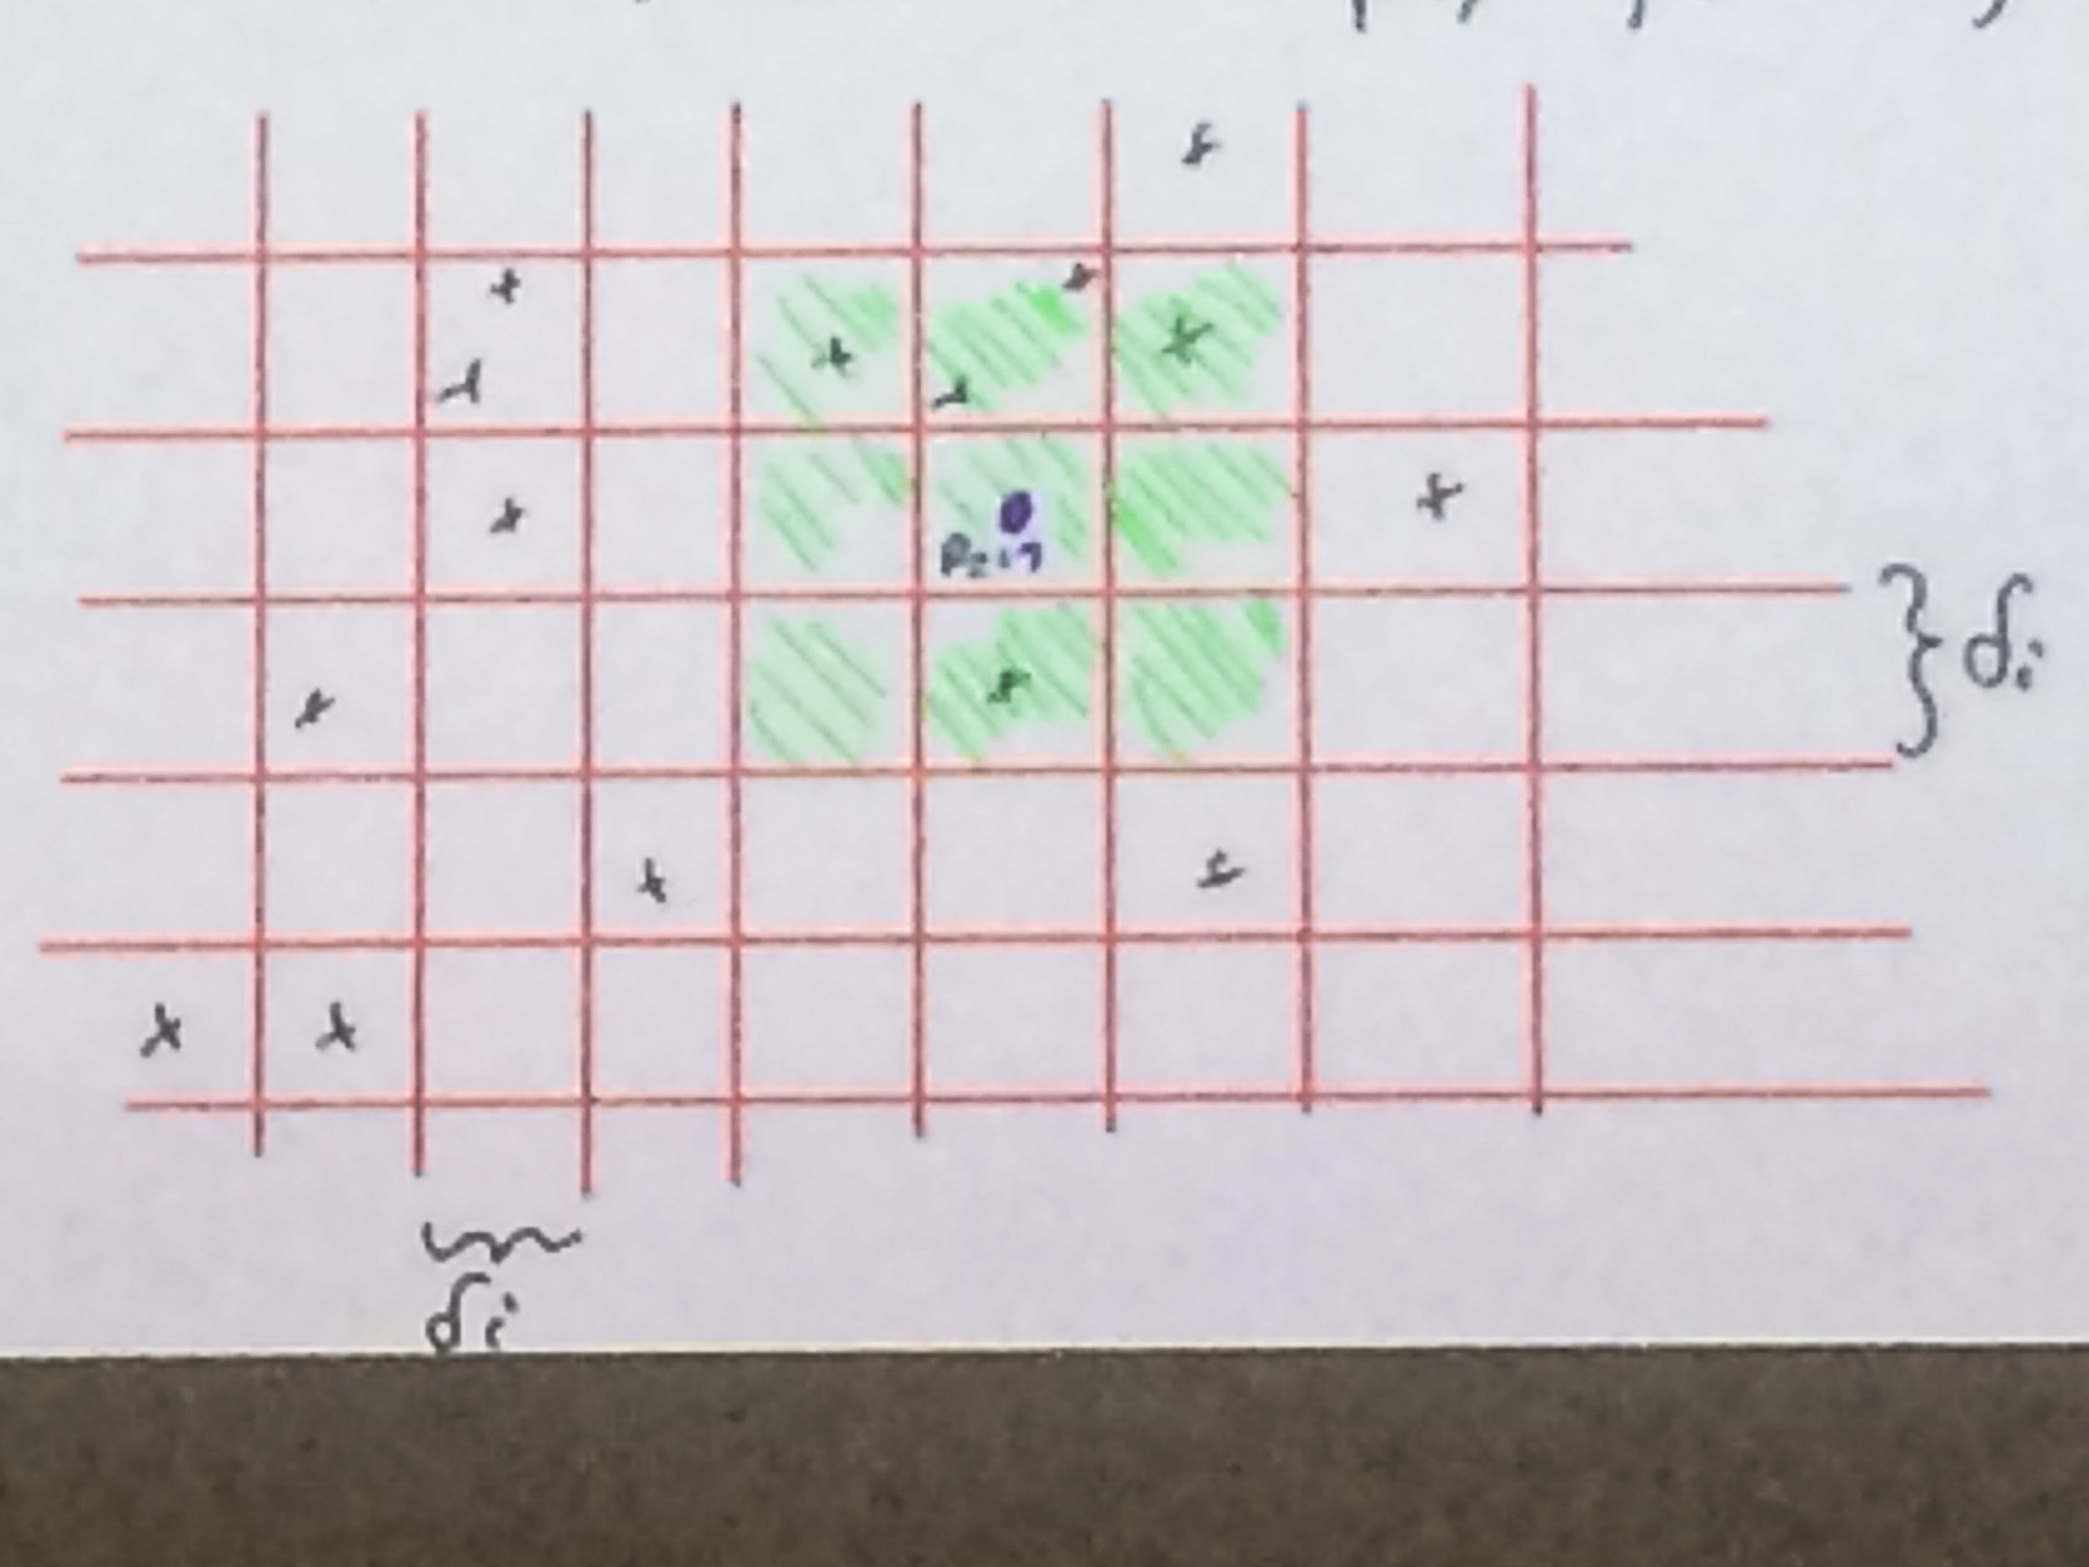 P_{i+1}
} δ_i
δ_i